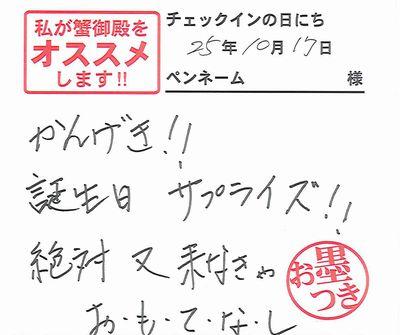 私が蟹御殿を
オススメ
します!!
チェックインの日にち
25年10月17日
ペンネーム 様
かんげき!!
誕生日 サプライズ!!
絶対 又 来なきゃ
お・も・て・な・し
お墨つき